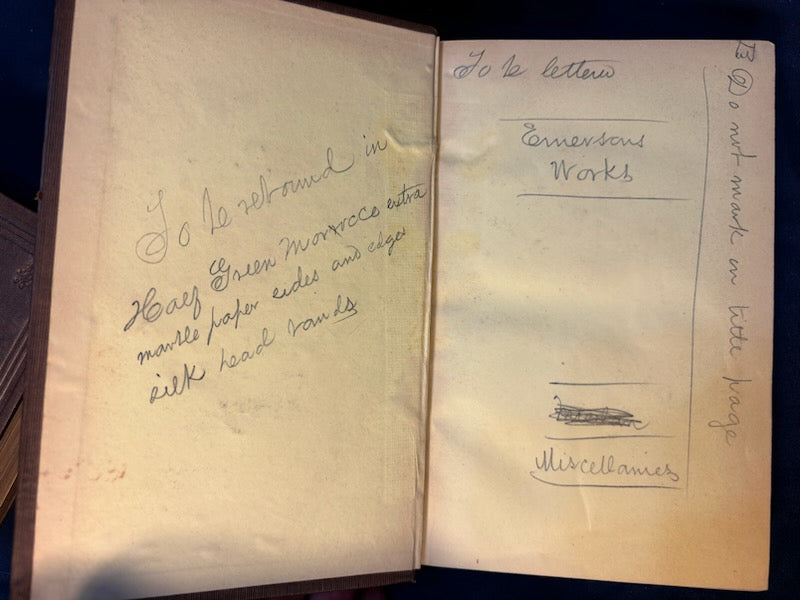 To be rebound in
Half Green Morrocco extra
marble paper sides and edges
silk head bands
To be lettered
Emersons
Works
Miscellanies
Do not mark on title page